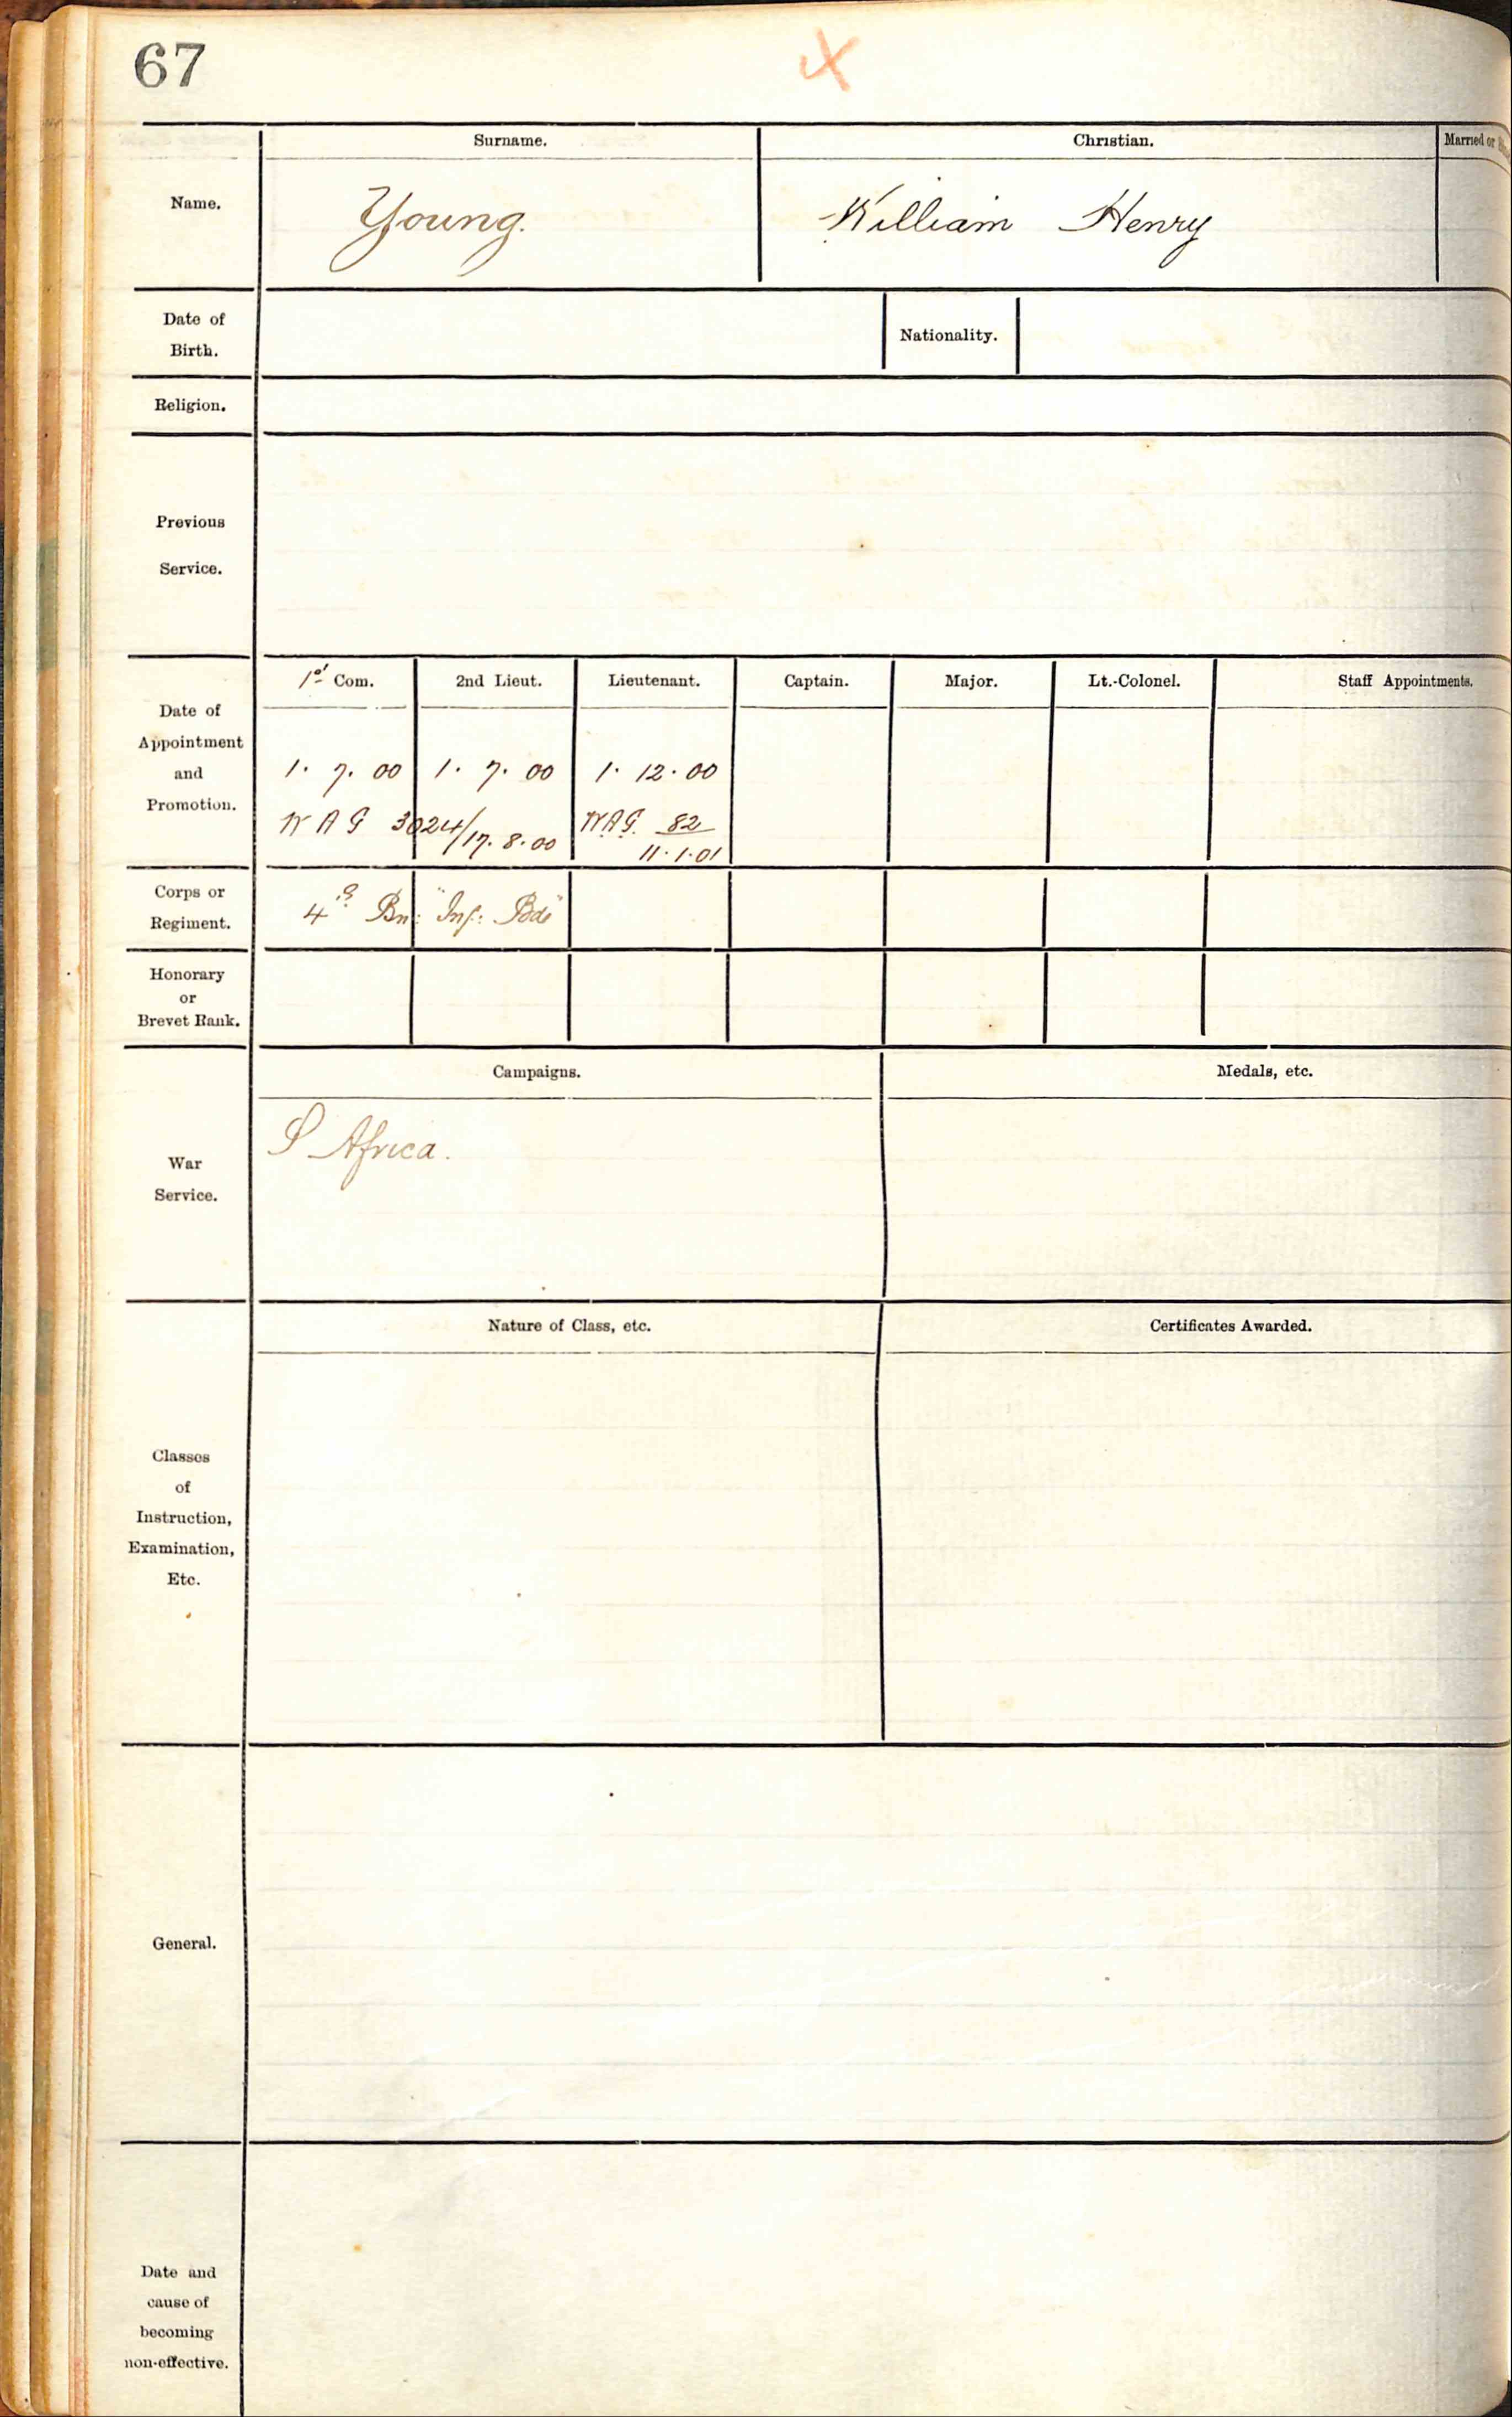 67
X
Surname. Christian. Married or
Name. Young. William Henry
Date of
Birth.
Nationality.
Religion.
Previous
Service.
1st Com. 2nd Lieut. Lieutenant. Captain. Major. Lt.-Colonel. Staff Appointments.
Date of
Appointment
and
Promotion.
1. 7. 00 1. 7. 00 1. 12. 00
W A G 3024/17. 8. 00 W.A.G. 82
11. 1. 01
Corps or
Regiment.
4th Bn: "Inf: Bde"
Honorary
or
Brevet Rank.
Campaigns. Medals, etc.
War
Service.
S Africa.
Nature of Class, etc. Certificates Awarded.
Classes
of
Instruction,
Examination,
Etc.
General.
Date and
cause of
becoming
non-effective.